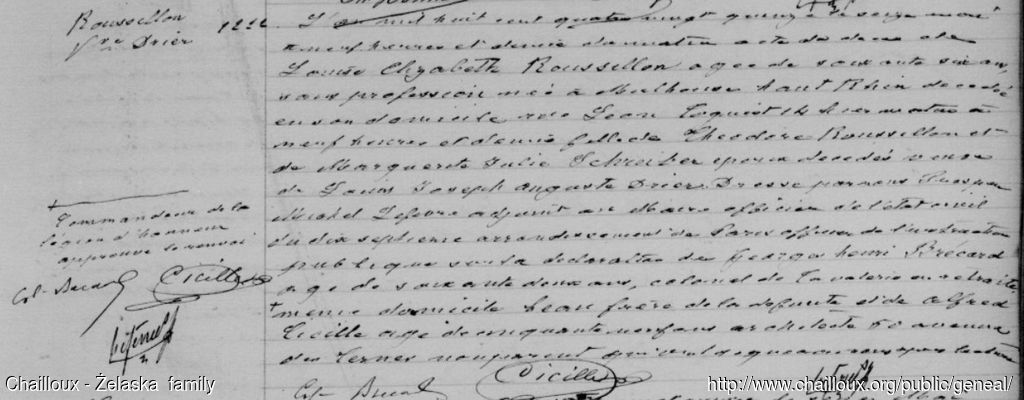 Roussillon
Vve Drier
L'an mil huit cent quatre vingt quinze le seize
neuf heures et demie du matin acte de deces de
Louise Elyzabeth Roussillon agee de soixante six ans,
sans profession née à Mulhouse haut Rhin decedée
en son domicile rue Leon 14 hier matin à
neuf heures et demie fille de Theodore Roussillon et
de Marguerite Julie Schreiber epoux decedés veuve
de Louis Joseph Auguste Drier. Dressé par nous
Michel Lefevre adjoint au Maire officier de l'etat civil
du dix septieme arrondissement de Paris officier de l'instruction
publique sur la declaration de Georges henri Brécard
age de soixante deux ans, colonel de cavalerie en retraite
+ meme domicile beau frère de la defunte et de Alfred
Cicille age de cinquante neuf ans architecte 50 avenue
des Ternes non parent qui ont signé avec nous apres lecture
+ Commandeur de la
légion d'honneur
approuvé le renvoi
Cicille
Cicille
Chailloux - Żelaska family
http://www.chailloux.org/public/geneal/